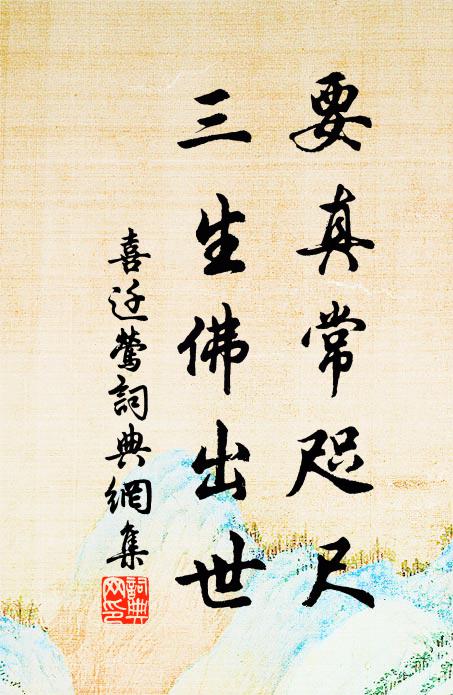 要真常咫尺
三生佛出世
喜迁鶯詞典網集
詞典网印